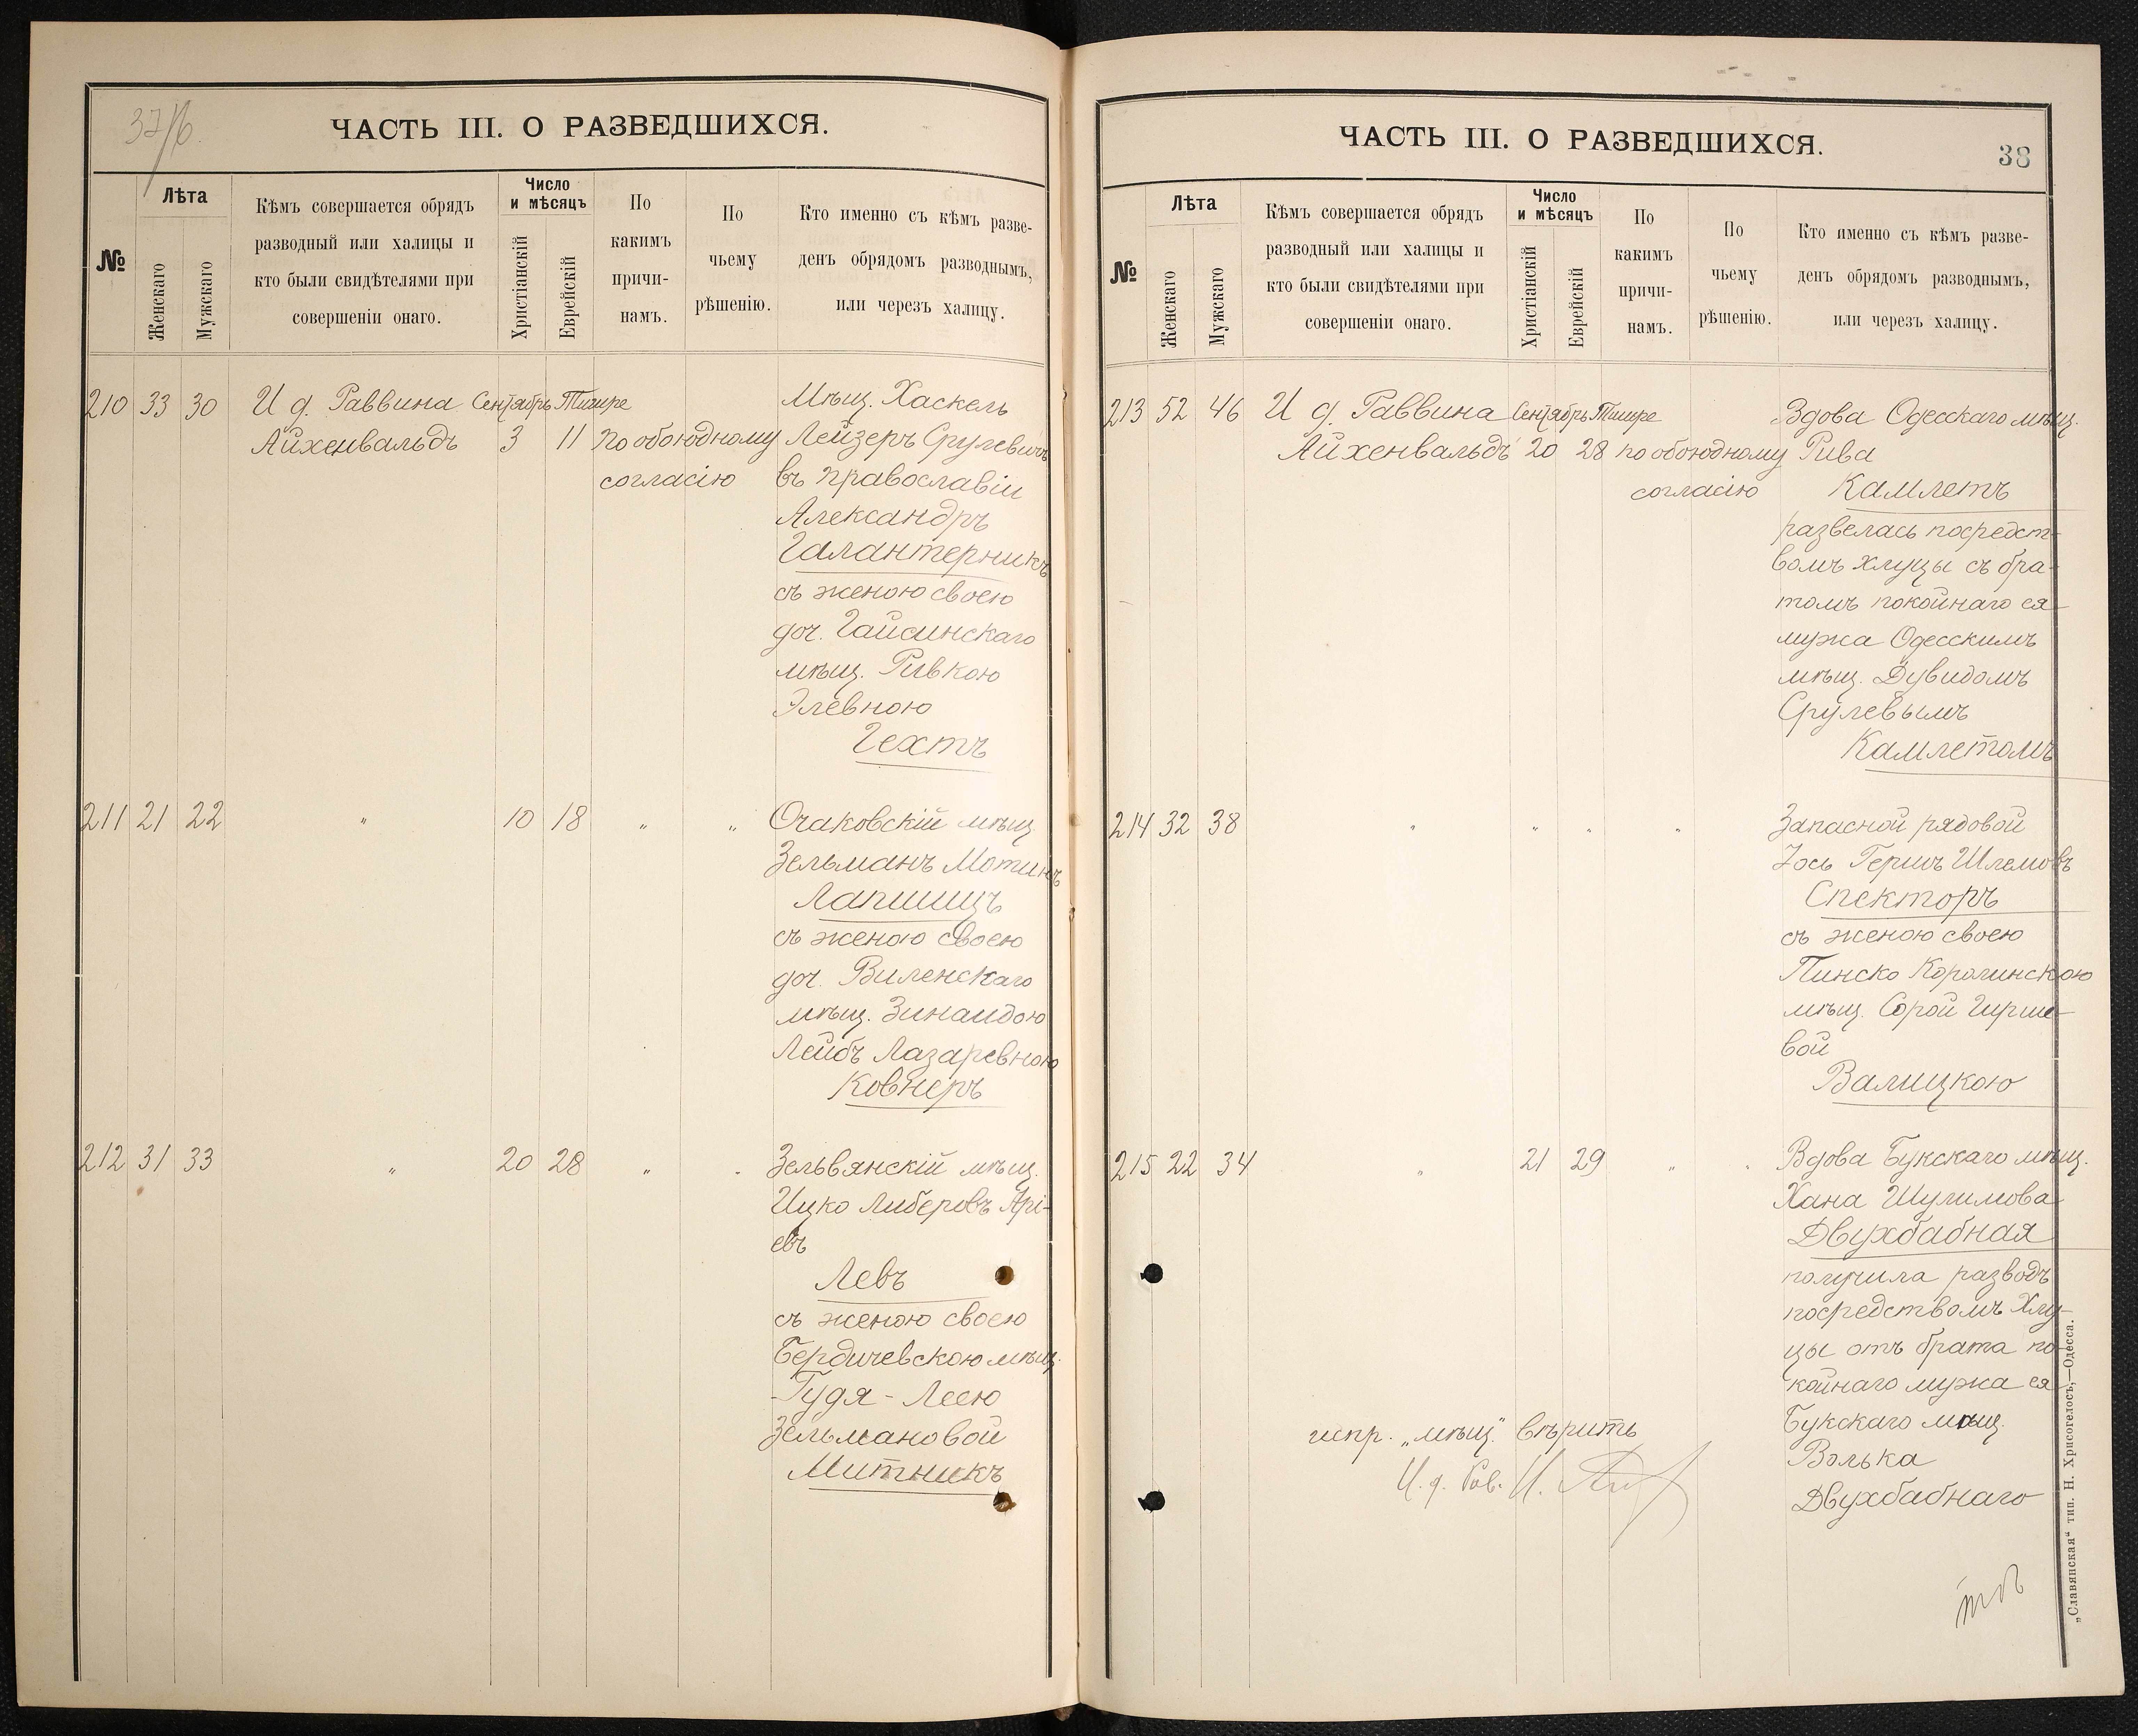 37/6.
ЧАСТЬ III. О РАЗВЕДШИХСЯ.
№
Лѣта
Женскаго
Мужскаго
Кѣмъ совершается обрядъ
разводный или халицы и
кто были свидѣтелями при
совершеніи онаго.
Число
и мѣсяцъ
Христіанскій
Еврейскій
По
какимъ
причи-
намъ.
По
чьему
рѣшенію.
Кто именно съ кѣмъ разве-
денъ обрядомъ разводнымъ,
или черезъ халицу.
210 33 30 И д. Раввина Сентябрь Тишре Мѣщ. Хаскель
Айхенвальдъ 3 11 по обоюдному Лейзеръ Срулевичъ
согласію въ православіи
Александръ
Галантерникъ
съ женою своею
доч. Гайсинскаго
мѣщ. Ривкою
Элевною
Гехтъ
211 21 22 " 10 18 " " Очаковскій мѣщ
Зельманъ Мотинъ
Лапшицъ
съ женою своею
доч. Виленскаго
мѣщ. Зинаидою
Лейбъ Лазаревною
Ковнеръ
212 31 33 " 20 28 " " Зельвянскій мѣщ.
Ицко Либеровъ Арі-
евъ
Левъ
съ женою своею
Бердичевскою мѣщ.
Гудя-Леею
Зельмановой
Митникъ
ЧАСТЬ III. О РАЗВЕДШИХСЯ.
38
№
Лѣта
Женскаго
Мужскаго
Кѣмъ совершается обрядъ
разводный или халицы и
кто были свидѣтелями при
совершеніи онаго.
Число
и мѣсяцъ
Христіанскій
Еврейскій
По
какимъ
причи-
намъ.
По
чьему
рѣшенію.
Кто именно съ кѣмъ разве-
денъ обрядомъ разводнымъ,
или черезъ халицу.
213 52 46 И д. Раввина Сентябрь Тишре Вдова Одесскаго мѣщ.
Айхенвальдъ 20 28 по обоюдному Рива
согласію Камлетъ
развелась посредст-
вомъ хлуцы съ бра-
томъ покойнаго ея
мужа Одесскимъ
мѣщ. Дувидомъ
Срулевымъ
Камлетомъ
214 32 38 " " " " Запасной рядовой
Іось Гершъ Шлемовъ
Спекторъ
съ женою своею
Пинско Каролинскою
мѣщ. Сорой Гирше-
вой
Валицкою
215 22 34 " 21 29 " " Вдова Букскаго мѣщ.
Хана Шулимова
Двухбабная
получила разводъ
посредствомъ Хлу-
цы отъ брата по-
койнаго мужа ея
Букскаго мѣщ.
Волька
Двухбабнаго
испр. „мѣщ." вѣрить
И. д. Рав.
„Славянская“ тип. Н. Хрисогелосъ,—Одесса.